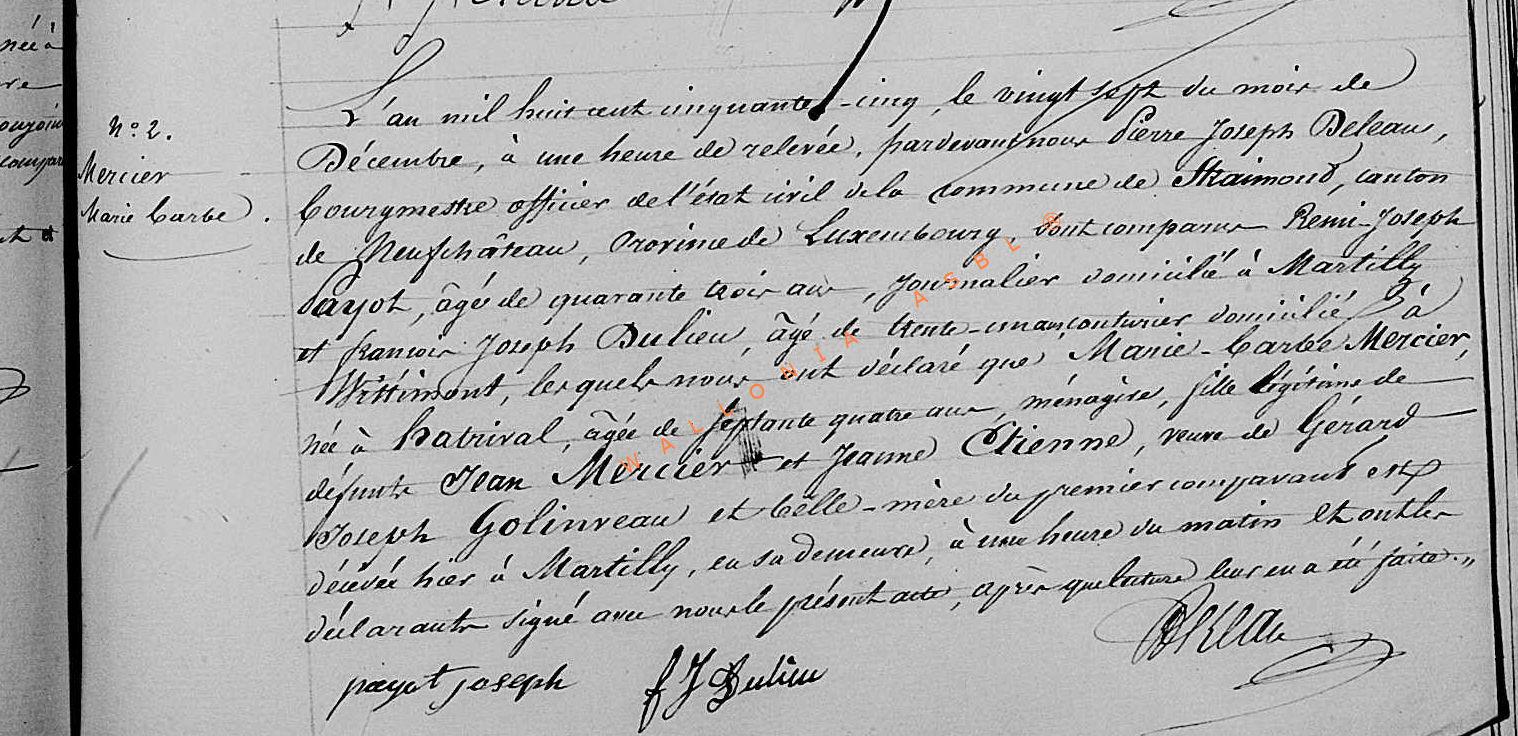 née à
N° 2.
Mercier
Marie Barbe.
L'an mil huit cent cinquante-cinq, le vingt sept du mois de
Décembre, à une heure de relevée, pardevant nous Pierre Joseph Deleau,
bourgmestre officier de l'état civil de la commune de Straimont, canton
de Neufchâteau, Province de Luxembourg, sont comparus Remi-Joseph
Payot, âgé de quarante trois ans, journalier domicilié à Martilly
et francois Joseph Dulieu, âgé de trente-un ans couturier domicilié à
Wittimont, lesquels nous ont déclaré que Marie-Barbe Mercier,
née à hatrival, âgée de septante quatre ans, ménagère, fille légitime de
défunts Jean Mercier et Jeanne Etienne, veuve de Gérard
Joseph Golinveau et belle-mère du premier comparant est
décédée hier à Martilly, en sa demeure, à une heure du matin et ont les
déclarants signé avec nous le présent acte, après que lecture leur en a été faite.
payot joseph
f J Dulieu
Deleau
WALLONIA ASBL ©